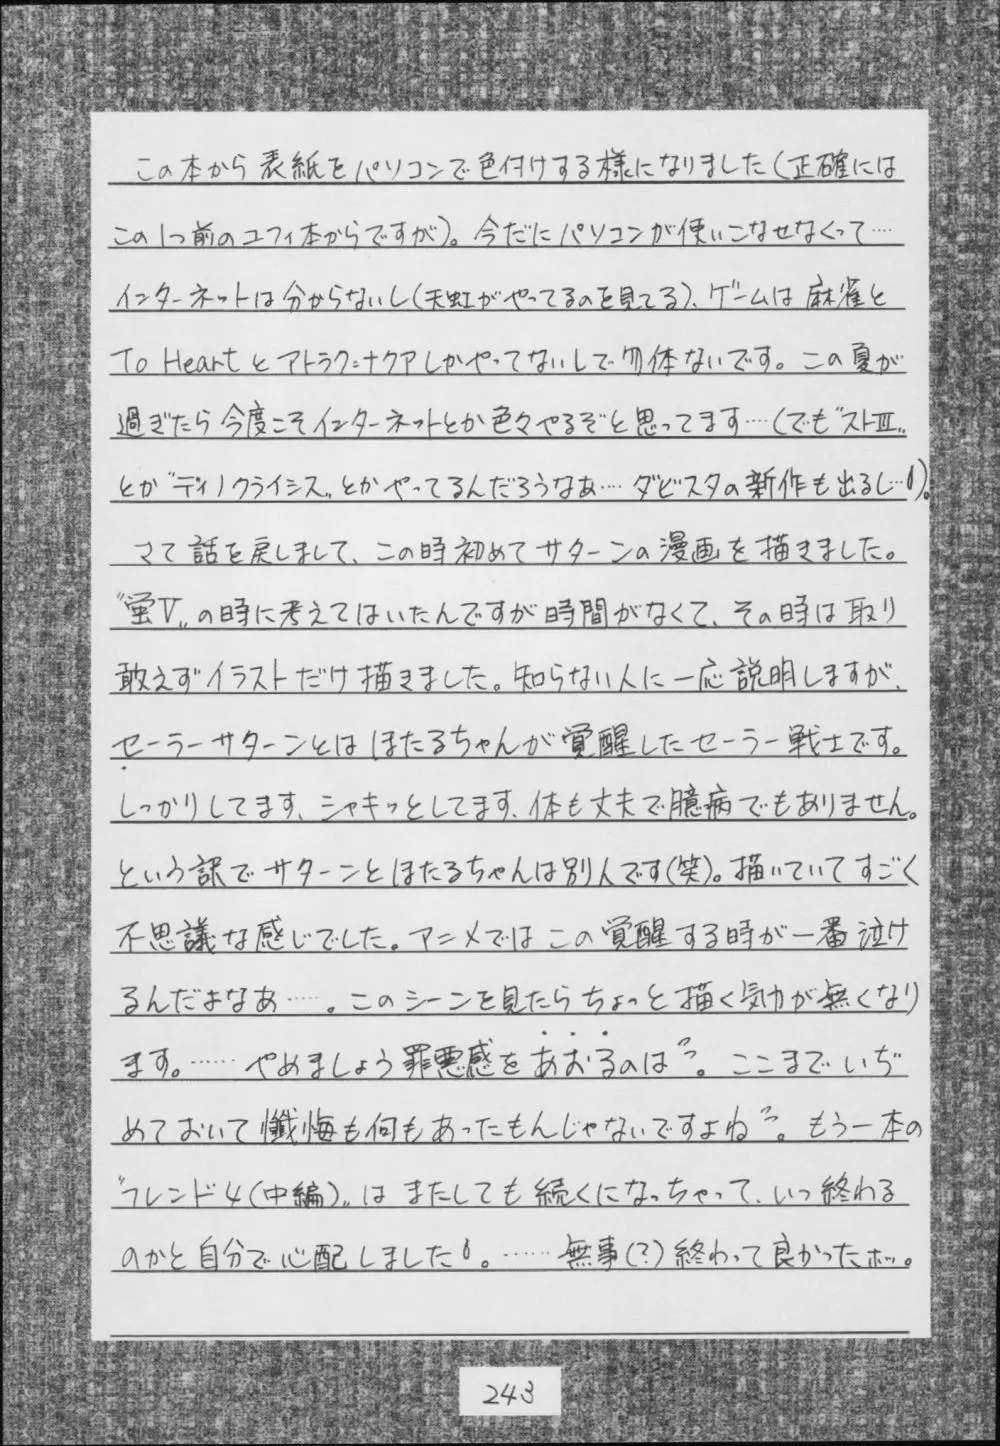 この本から表紙をパソコンで色付けする様になりました(正確には
この1つ前のユフィ本からですが)。今だにパソコンが使いこなせなくって……
インターネットは分からないし(天虹がやってるのを見てる)、ゲームは麻雀と
To Heartとアトラク=ナクアしかやってないしで勿体ないです。この夏が
過ぎたら今度こそインターネットとか色々やるぞと思ってます……(でも〝ストⅢ〟
とか〝ディノクライシス〟とかやってるんだろうなあ…ダビスタの新作も出るし…)。
さて話を戻しまして、この時初めてサターンの漫画を描きました。
〝蛍Ⅴ〟の時に考えてはいたんですが時間がなくて、その時は取り
敢えずイラストだけ描きました。知らない人に一応説明しますが、
セーラーサターンとはほたるちゃんが覚醒したセーラー戦士です。
しっかりしてます、シャキッとしてます、体も丈夫で臆病でもありません。
という訳でサターンとほたるちゃんは別人です(笑)。描いていてすごく
不思議な感じでした。アニメではこの覚醒する時が一番泣け
るんだよなあ……。このシーンを見たらちょっと描く気力が無くなり
ます。……やめましょう罪悪感をあおるのは。ここまでいぢ
めておいて懺悔も何もあったもんじゃないですよね。もう一本の
〝フレンド4(中編)〟はまたしても続くになっちゃって、いつ終わる
のかと自分で心配しました。……無事(?)終わって良かったホッ。
243